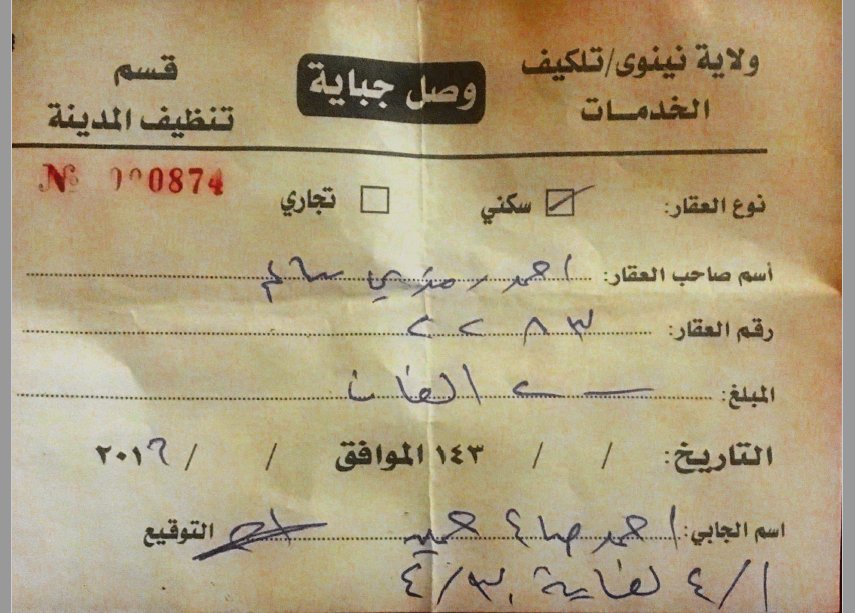 ولاية نينوى/تلكيف
الخدمات
وصل جباية
قسم
تنظيف المدينة
№ 000874
نوع العقار: سكني تجاري
أسم صاحب العقار: احمد رمزي سالم
رقم العقار: ٢٢ ٨٣
المبلغ: الفان
التاريخ: / / ١٤٣ الموافق / / ٢٠١٦
اسم الجابي: احمد صالح حميد التوقيع
٤/١ لغاية ٤/٣٠